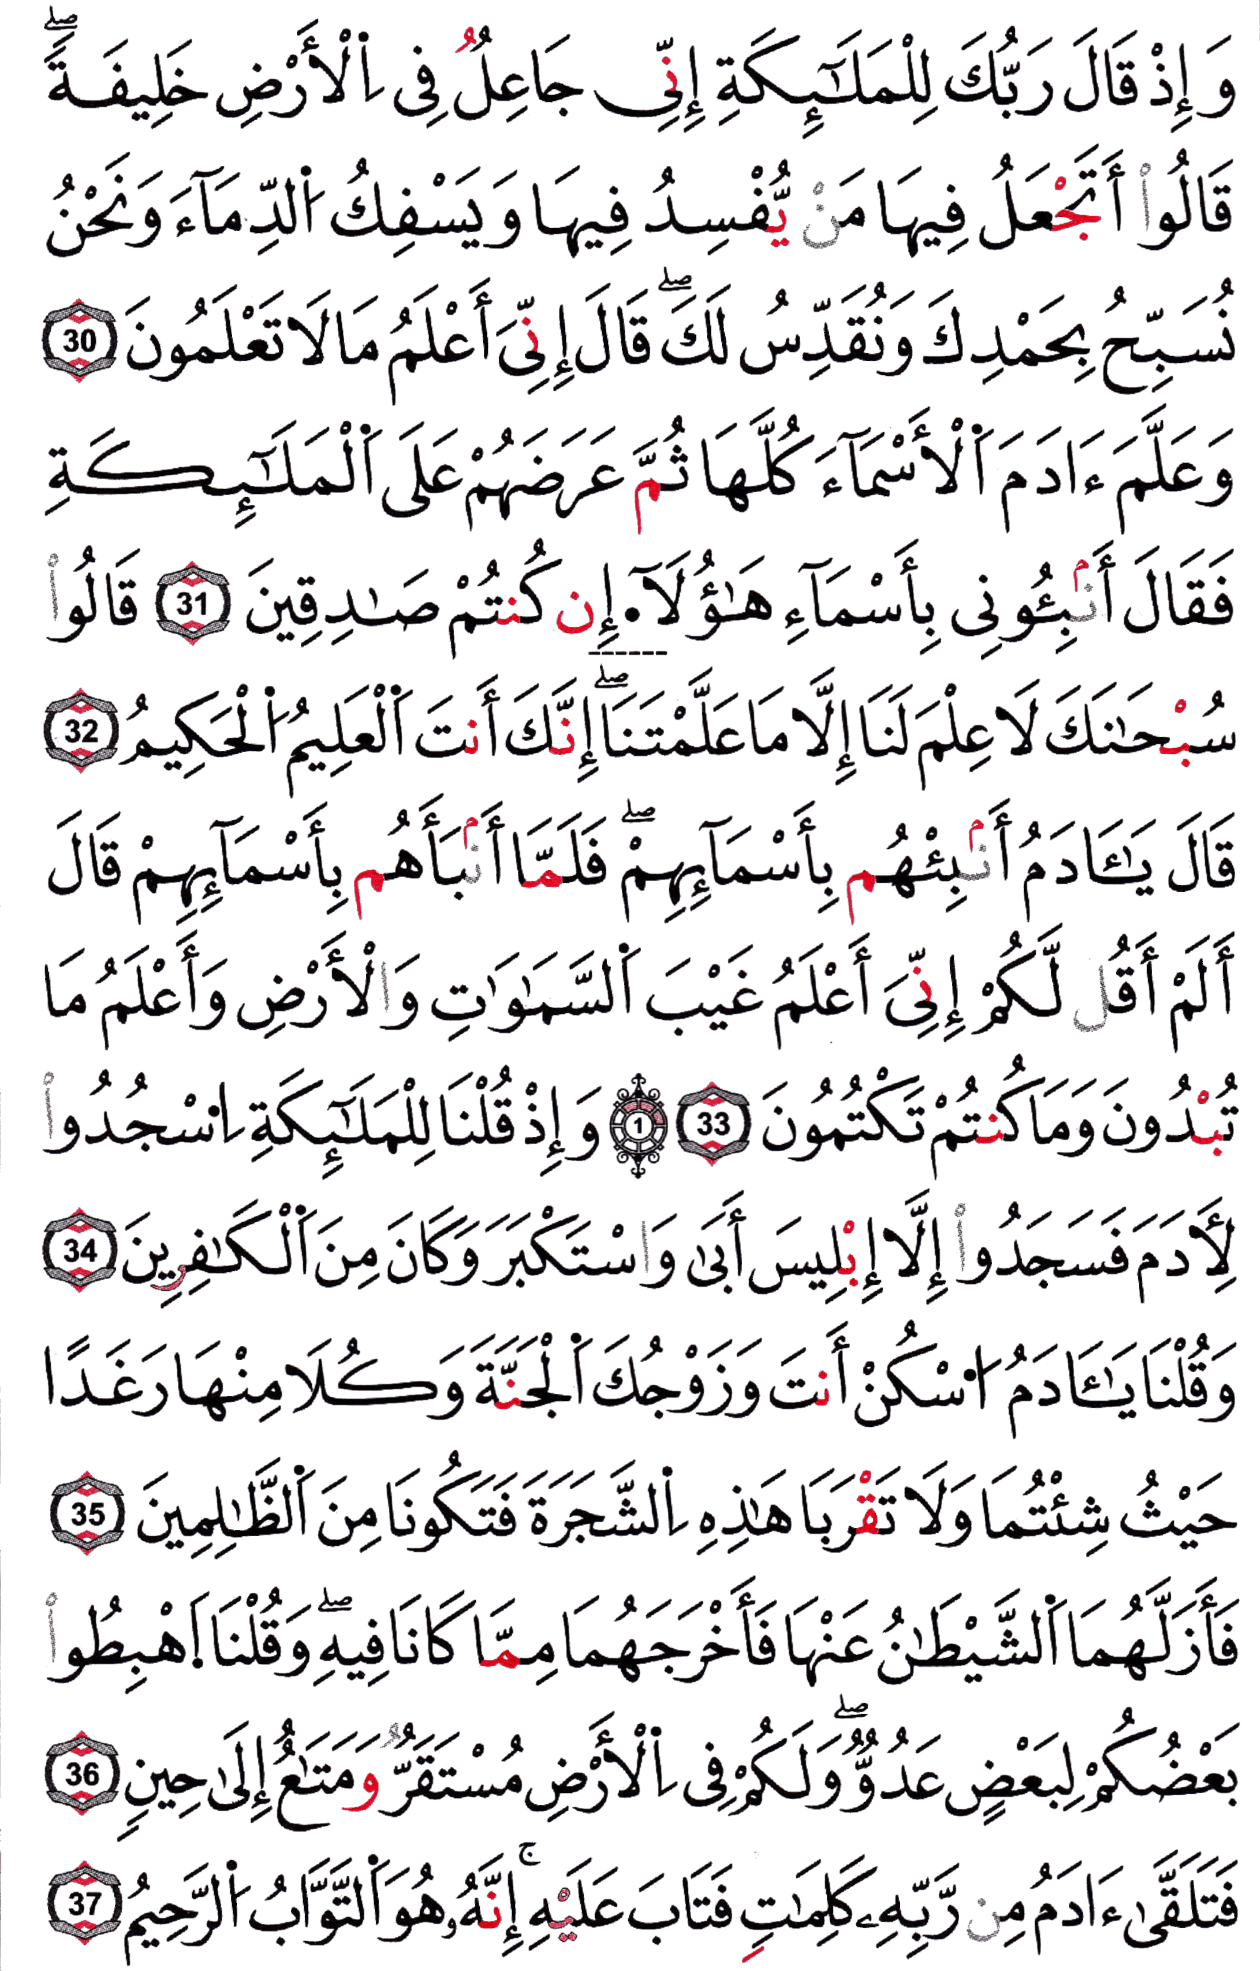 وَإِذْ قَالَ رَبُّكَ لِلْمَلَٰٓئِكَةِ إِنِّى جَاعِلٌ فِى اِ۬لْأَرْضِ خَلِيفَةًۖ
قَالُواْ أَتَجْعَلُ فِيهَا مَنْ يُّفْسِدُ فِيهَا وَيَسْفِكُ اُ۬لدِّمَآءَ وَنَحْنُ
نُسَبِّحُ بِحَمْدِكَ وَنُقَدِّسُ لَكَۖ قَالَ إِنِّىَ أَعْلَمُ مَا لَا تَعْلَمُونَ 30
وَعَلَّمَ ءَادَمَ اَ۬لْأَسْمَآءَ كُلَّهَا ثُمَّ عَرَضَهُمْ عَلَى اَ۬لْمَلَٰٓئِكَةِ
فَقَالَ أَنۢبِـُٔونِى بِأَسْمَآءِ هَٰٓؤُلَآ۟ إِن كُنتُمْ صَٰدِقِينَ 31 قَالُواْ
سُبْحَٰنَكَ لَا عِلْمَ لَنَا إِلَّا مَا عَلَّمْتَنَاۖ إِنَّكَ أَنتَ اَ۬لْعَلِيمُ اُ۬لْحَكِيمُ 32
قَالَ يَٰـَٔادَمُ أَنۢبِئْهُم بِأَسْمَآئِهِمْۖ فَلَمَّا أَنۢبَأَهُم بِأَسْمَآئِهِمْ قَالَ
أَلَمْ أَقُل لَّكُمْ إِنِّىَ أَعْلَمُ غَيْبَ اَ۬لسَّمَٰوَٰتِ وَالْأَرْضِ وَأَعْلَمُ مَا
تُبْدُونَ وَمَا كُنتُمْ تَكْتُمُونَ 33 1 وَإِذْ قُلْنَا لِلْمَلَٰٓئِكَةِ اِ۟سْجُدُواْ
لِأٓدَمَ فَسَجَدُواْ إِلَّا إِبْلِيسَ أَبَىٰ وَاسْتَكْبَرَ وَكَانَ مِنَ اَ۬لْكَٰفِرِينَ 34
وَقُلْنَا يَٰـَٔادَمُ اُ۟سْكُنْ أَنتَ وَزَوْجُكَ اَ۬لْجَنَّةَ وَكُلَا مِنْهَا رَغَدًا
حَيْثُ شِئْتُمَا وَلَا تَقْرَبَا هَٰذِهِ اِ۬لشَّجَرَةَ فَتَكُونَا مِنَ اَ۬لظَّٰلِمِينَ 35
فَأَزَلَّهُمَا اَ۬لشَّيْطَٰنُ عَنْهَا فَأَخْرَجَهُمَا مِمَّا كَانَا فِيهِۖ وَقُلْنَا اَ۪هْبِطُواْ
بَعْضُكُمْ لِبَعْضٍ عَدُوٌّۖ وَلَكُمْ فِى اِ۬لْأَرْضِ مُسْتَقَرٌّ وَمَتَٰعٌ إِلَىٰ حِينٍ 36
فَتَلَقَّىٰ ءَادَمُ مِن رَّبِّهِۦ كَلِمَٰتٍ فَتَابَ عَلَيْهِۚ إِنَّهُۥ هُوَ اَ۬لتَّوَّابُ اُ۬لرَّحِيمُ 37